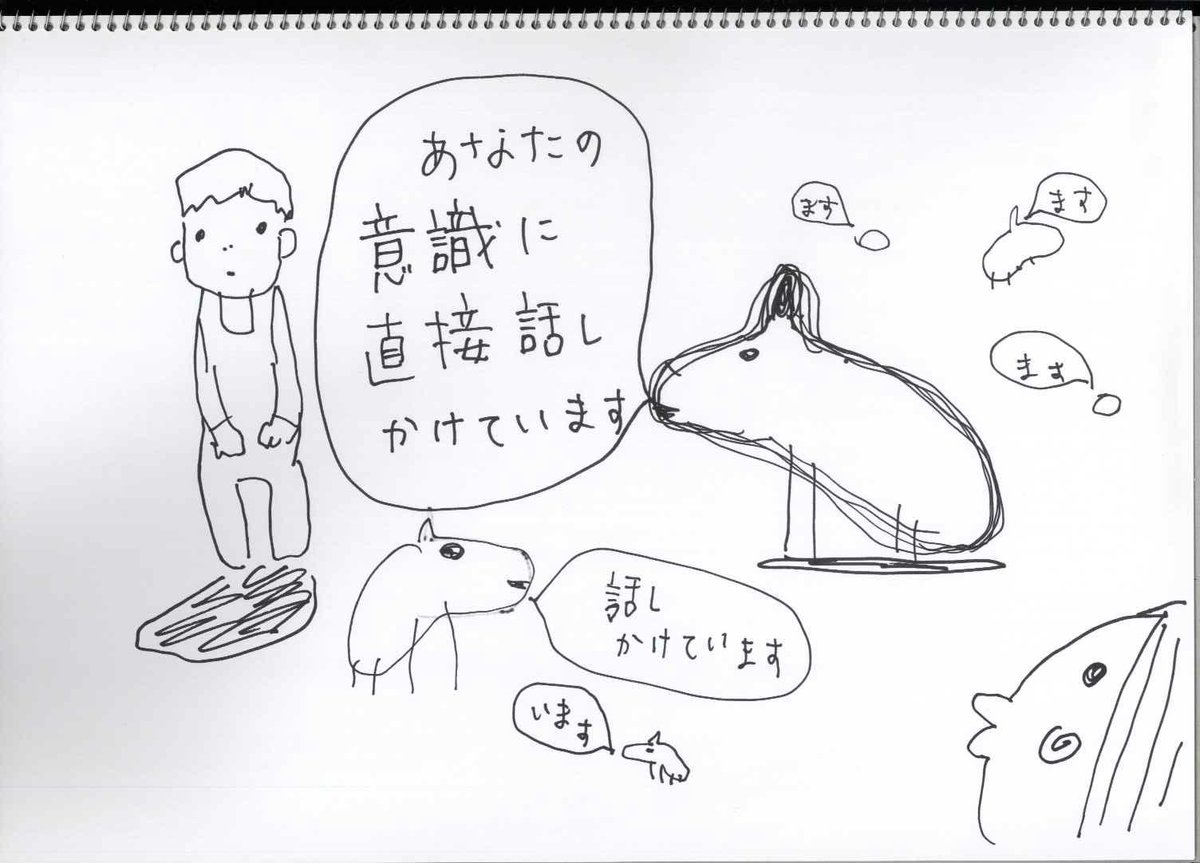 あなたの
意識に
直接話し
かけています
ます
ます
ます
話し
かけています
います